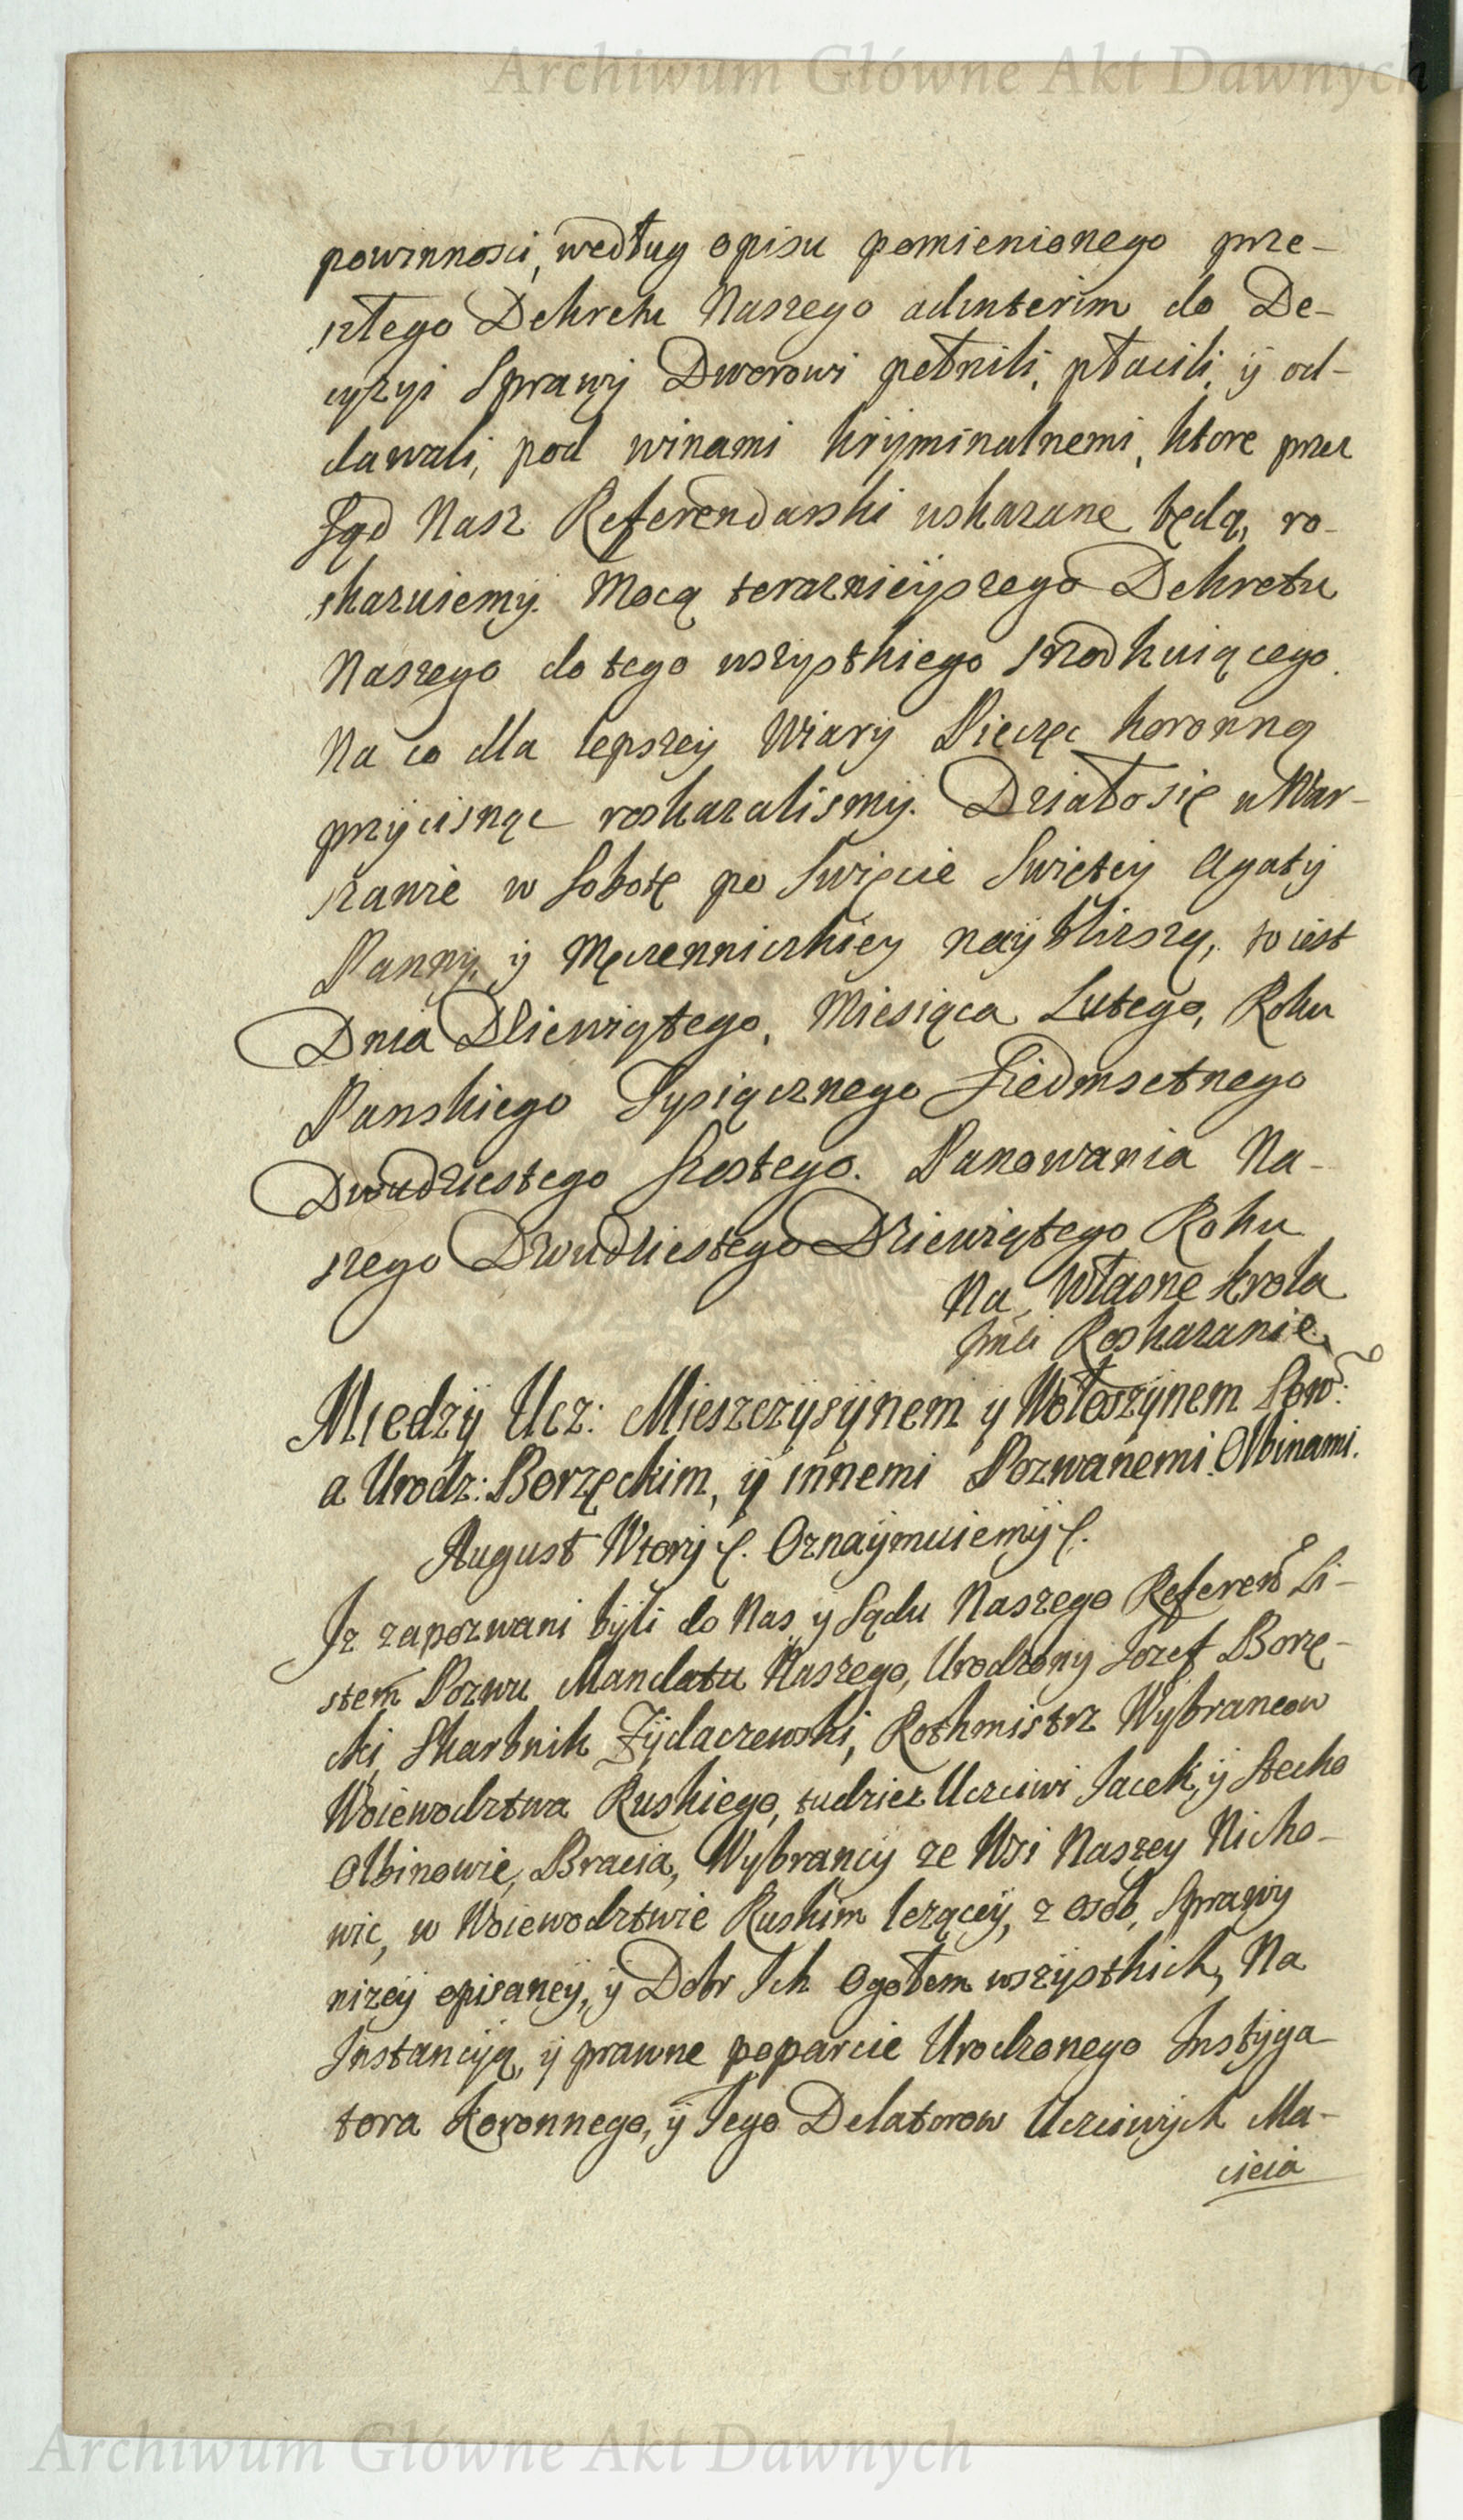 Archiwum Główne Akt Dawnych
powinnosci, według opisu pomienionego prze-
szłego Dekretu Naszego adinterim do De-
cyzyi Sprawy Dworowi pełnili, płacili, ÿ od-
dawali, pod winami kryminalnemi, ktore przez
Sąd Nasz Referendarski uskazane będą, ro-
skazuiemy. Mocą teraznieÿszego Dekretu
Naszego do tego wszystkiego srzodkuiącego.
Na co dla lepszeÿ Wiary Pieczęc koronną
przÿcisnąc roskazalismy. Działo się w War-
szawie w Sobotę po Swięcie SwięteÿAgaty
Panny, ÿ Męczenniczkiey nayblizszą, to iest
Dnia Dziewiątego, Miesiąca Lutego, Roku
Panskiego Tysiącznego Siedmsetnego
Dwudziestego Szostego. Panowania Na-
szego Dwudziestego Dziewiątego Roku
Na Własne krola
Jmci Roskazanie.
Miedzÿ Ucz: Mieszczÿsÿnem y Wołoszÿnem Pow:
a Urodz: Borzęckim, ÿ innemi Pozwanemi Olbinami.
August Wtorÿ &. Oznaÿmuiemÿ &.
Iz zapozwani bÿli do Nas y Sądu Naszego Referen Li-
stem Pozwu Mandatu Naszego, Urodzony Jozef Borzę-
cki, Skarbnik Zÿdaczewski, Rothmistrz Wÿbrancow
Woiewodztwa Ruskiego, tudziez Uczciwi Jacek, ÿ Stecko
Olbinowie, Bracia, Wybrancÿ ze Wsi Naszey Nicko-
wic, w Woiewodztwie Ruskim leząceÿ, z osob, Sprawÿ
nizeÿ opisaneÿ, ÿ Dobr Ich ogołem wszÿstkich, Na
Instancyą, ÿ prawne poparcie Urodzonego Instÿga-
tora Koronnego, ÿ Iego Delatorow Uczciwÿch Ma-
cieia
Archiwum Główne Akt Dawnych